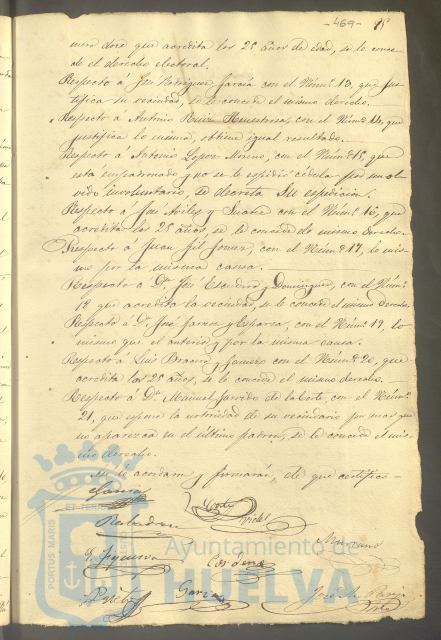 -469- 95
mero doce que acredita los 25 años de edad, se le conce-
de el derecho electoral.
Respecto á José Rodriguez Garcia con el Núm.º 13, que jus-
tifica su vecindad, se le concede el mismo derecho.
Respecto á Antonio con el Núm.º 14, que
justifica lo mismo, obtiene igual resultado.
Respecto á Antonio Lopez Moreno, con el Núm.º 15, que
está empadronado y no se le espidió cédula por un ol-
vido involuntario, se decreta su espedicion.
Respecto á José Aviles y Suarez con el Núm.º 16, que
acredita los 25 años, se le concede el mismo derecho.
Respecto á Juan Gil Gomez, con el Núm.º 17, lo mis-
mo por la misma causa.
Respecto á D.n José Escudero y Dominguez, con el Núm.º
18 que acredita la vecindad, se le concede el mismo derecho.
Respecto á D.n José Garcia y Esparza, con el Núm.º 19, lo
mismo que el anterior y por la misma causa.
Respecto á Luis y Romero con el Núm.º 20, que
acredita los 25 años, se le concede el mismo derecho.
Respecto á D.n Manuel Garrido de la Corte, con el Núm.º
21, que espone la notoriedad de su vecindario por mas que
no aparezca en el último padron, se le concede el mis-
mo derecho.
Asi lo acordaron y firmarán, de que certifico=
Garcia
Cordero
José M.
PORTUS MARIS
Ayuntamiento de
HUELVA